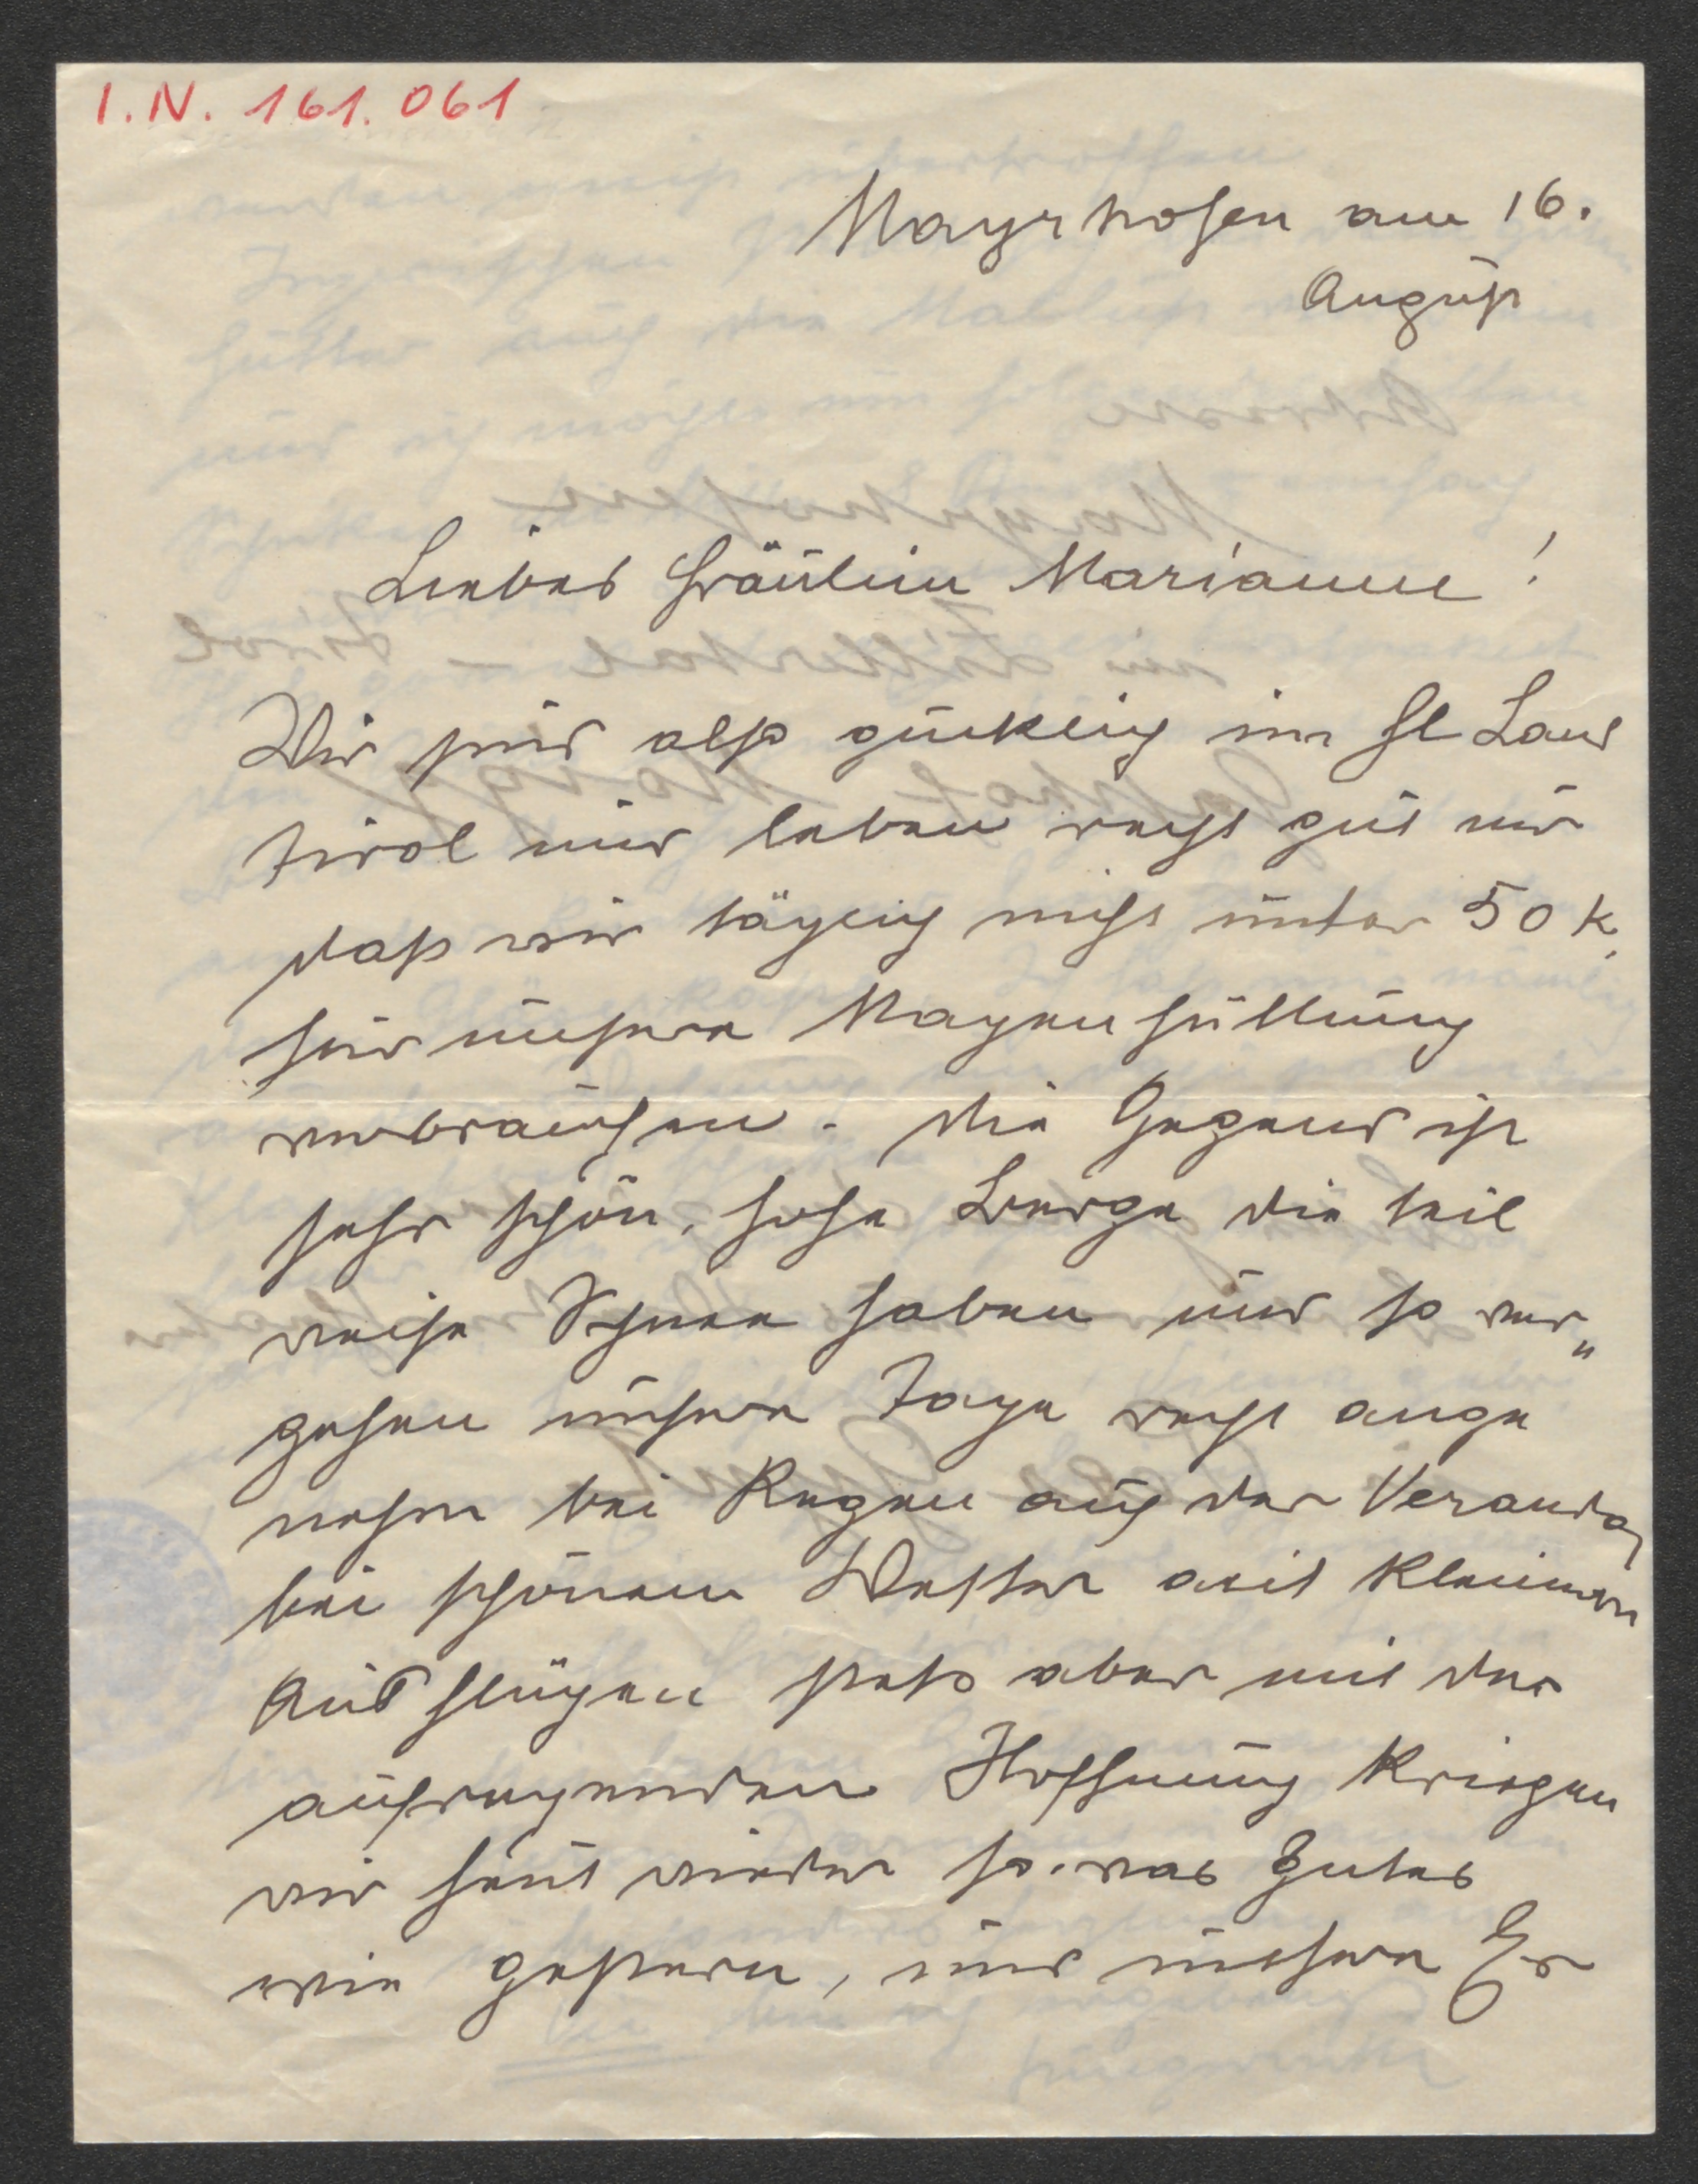 I.N. 161.061
Mayrhofen am 16.
August
Liebes Fräulein Marianne!
Wir sind also glücklich im hl Land
Tirol und leben recht gut und
daß wir täglich nicht unter 50 K
für unsere Magenfüllung
verbrauchen. Die Gegend ist
sehr schön, hohe Berge die teil
weise Schnee haben und so ver„
gehen unsere Tage recht ange
nehm bei Regen auf der Veranda,
bei schönem Wetter mit kleineren
Ausflügen stets aber mit der
aufregenden Hoffnung kriegen
wir heut wieder so was Gutes
wie gestern, und unsere Er